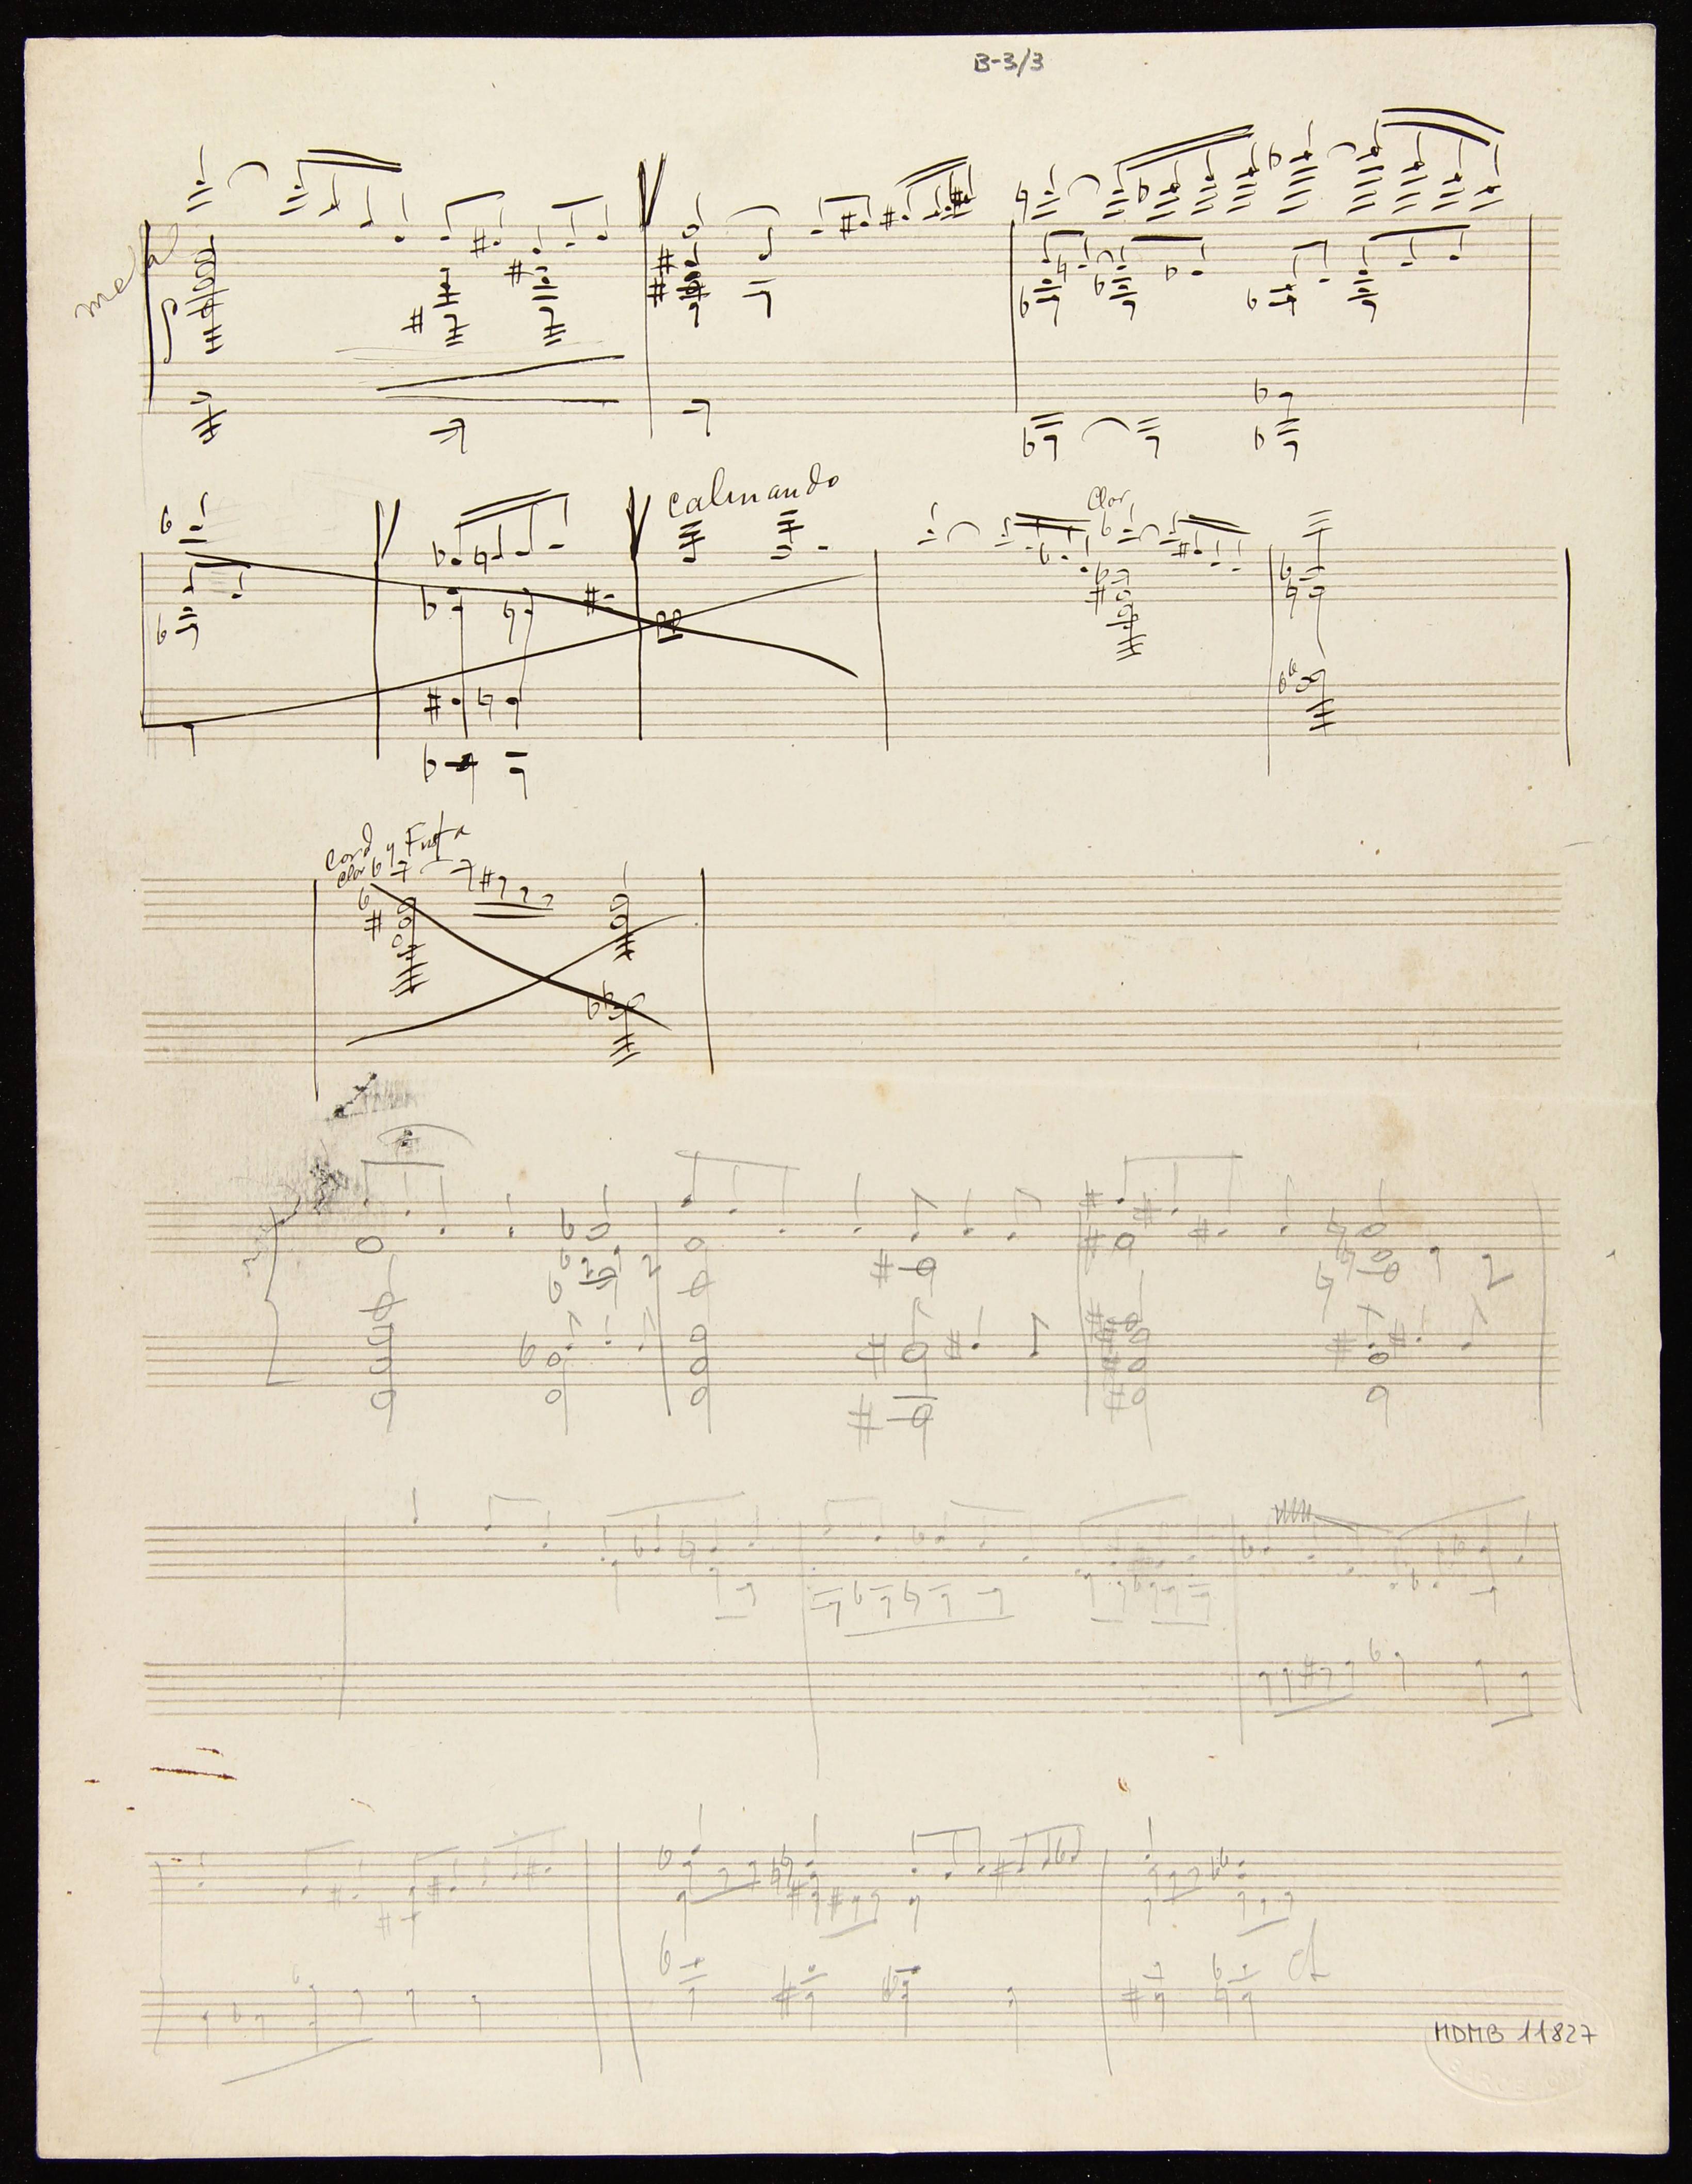 B-3/3
calmando
Clar
Cord y Fusta
Clar
MDMB 11827